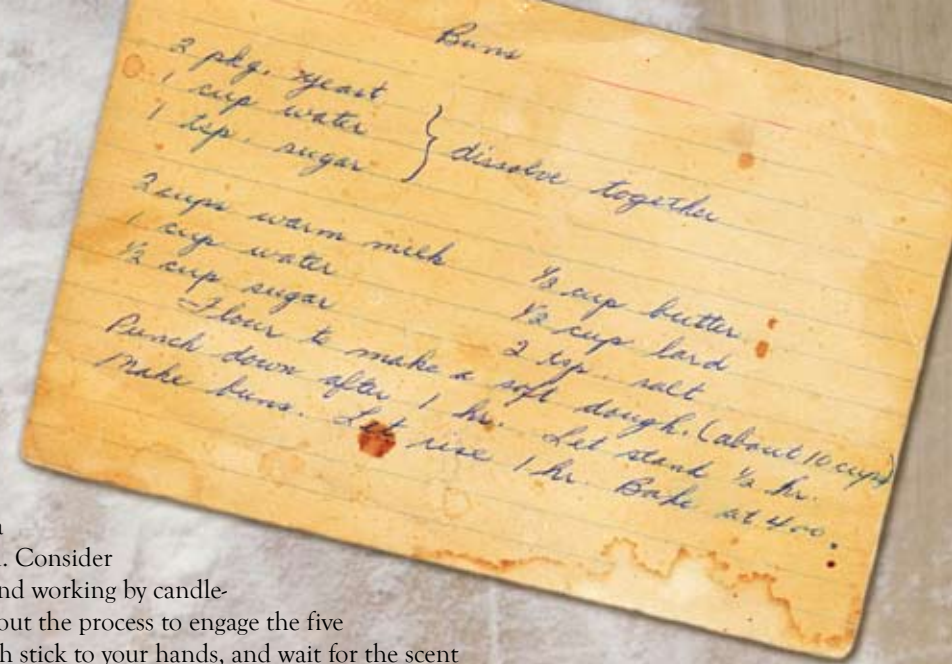 Buns
2 pkg. yeast
1 cup water
1 tsp. sugar
} dissolve together
2 cups warm milk
1 cup water
½ cup sugar
½ cup butter
½ cup lard
2 tsp. salt
Flour to make a soft dough. (about 10 cups)
Punch down after 1 hr. Let stand ½ hr.
Make buns. Let rise 1 hr. Bake at 400.
. Consider
nd working by candle-
out the process to engage the five
h stick to your hands, and wait for the scent